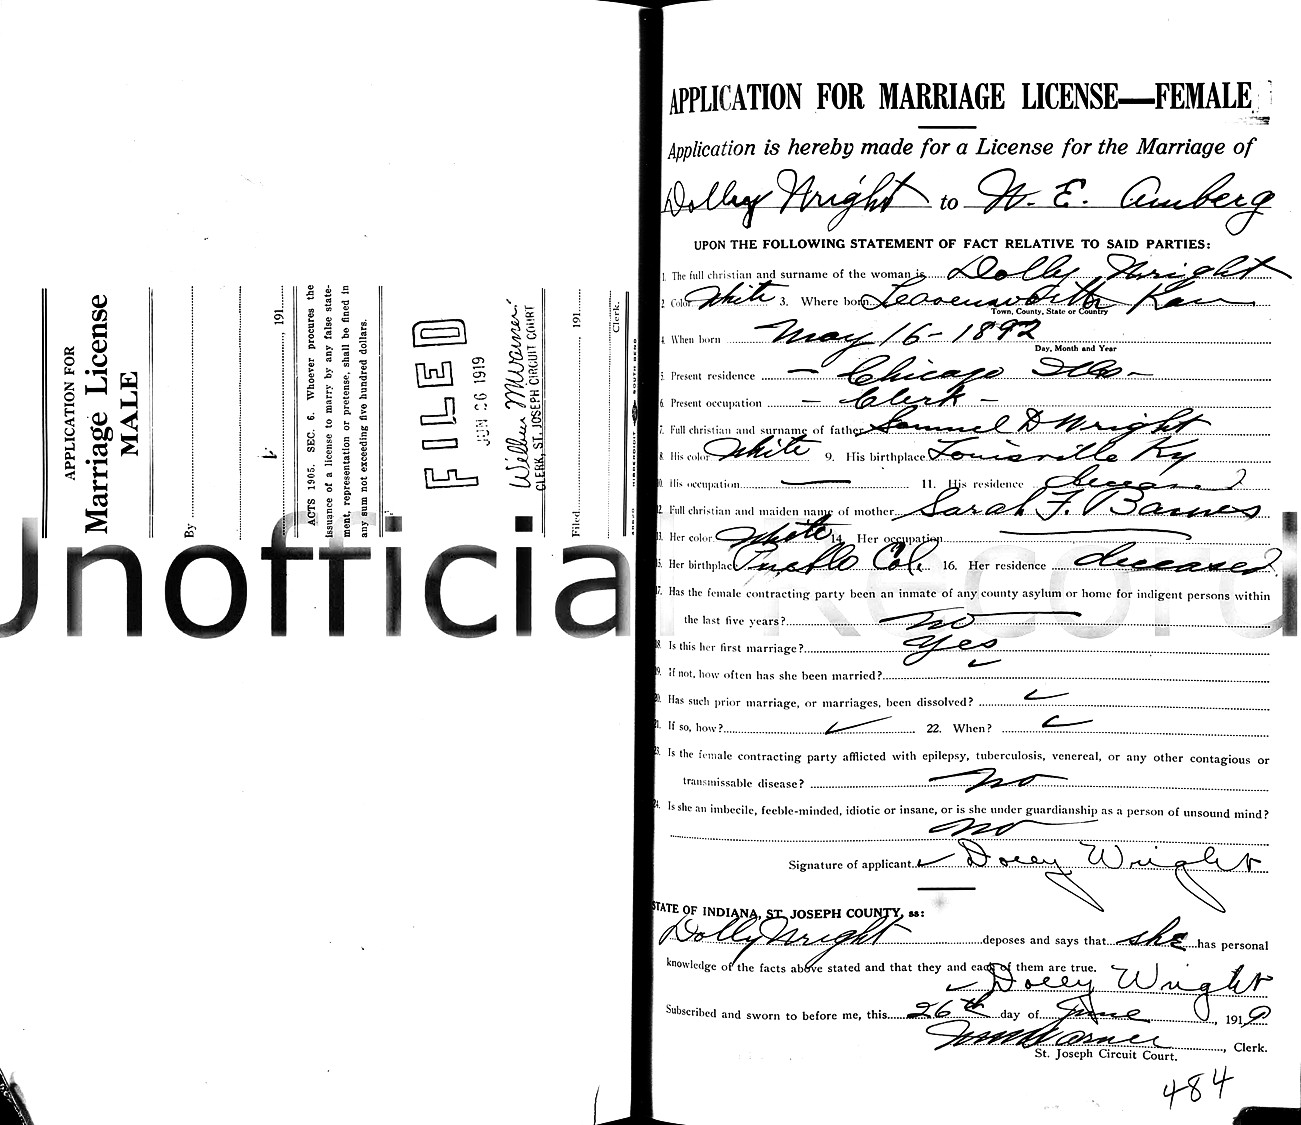 APPLICATION FOR
Marriage License
MALE
By
191
ACTS 1905. SEC. 6. Whoever procures the
issuance of a license to marry by any false state-
ment, representation or pretense, shall be fined in
any sum not exceeding five hundred dollars.
FILED
JUN 26 1919
CLERK, ST. JOSEPH CIRCUIT COURT
Filed 191
Clerk.
Unofficial Record
APPLICATION FOR MARRIAGE LICENSE—FEMALE
Application is hereby made for a License for the Marriage of
Dolly Wright to W. E. Amberg
UPON THE FOLLOWING STATEMENT OF FACT RELATIVE TO SAID PARTIES:
1. The full christian and surname of the woman is Dolly Wright
2. Color White 3. Where born Leavenworth Kan
Town, County, State or Country
4. When born May 16-1892
Day, Month and Year
5. Present residence - Chicago Ills -
6. Present occupation - Clerk -
7. Full christian and surname of father Samuel D Wright
8. His color White 9. His birthplace Louisville Ky
10. His occupation — 11. His residence deceased
12. Full christian and maiden name of mother Sarah F. Barnes
13. Her color White 14. Her occupation —
15. Her birthplace Pueblo Col. 16. Her residence deceased
17. Has the female contracting party been an inmate of any county asylum or home for indigent persons within
the last five years? no
18. Is this her first marriage? Yes
19. If not, how often has she been married?
20. Has such prior marriage, or marriages, been dissolved?
21. If so, how? 22. When?
23. Is the female contracting party afflicted with epilepsy, tuberculosis, venereal, or any other contagious or
transmissable disease? no
24. Is she an imbecile, feeble-minded, idiotic or insane, or is she under guardianship as a person of unsound mind?
no
Signature of applicant Dolly Wright
STATE OF INDIANA, ST. JOSEPH COUNTY, ss:
Dolly Wright deposes and says that she has personal
knowledge of the facts above stated and that they and each of them are true.
Dolly Wright
Subscribed and sworn to before me, this 26th day of June, 1919
Clerk.
St. Joseph Circuit Court.
484